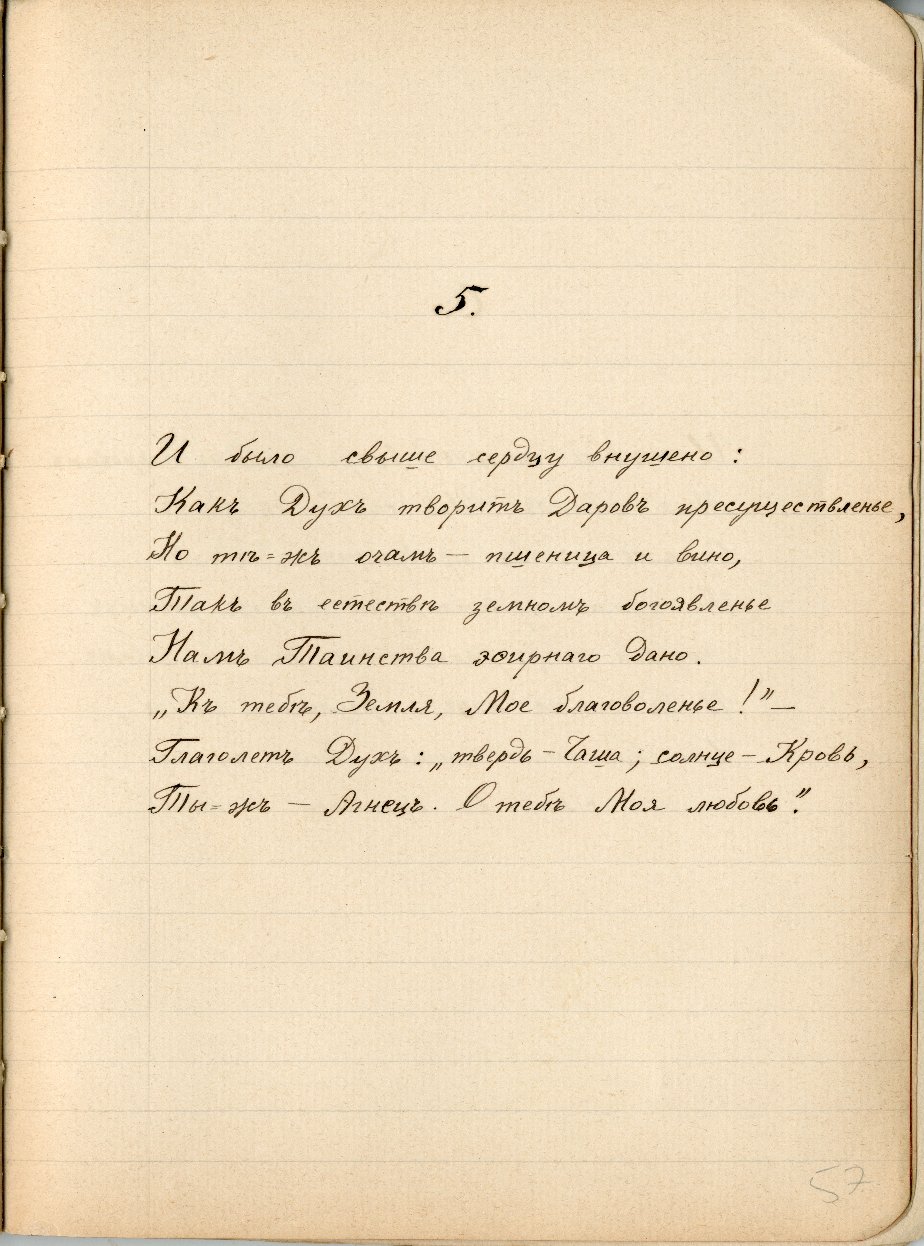 5.
И было свыше сердцу внушено:
Какъ Духъ творитъ Даровъ пресуществленье,
Но тѣ=жъ очамъ — пшеница и вино,
Такъ въ естествѣ земномъ богоявленье
Намъ Таинства эѳирнаго дано.
„Къ тебѣ, Земля, Мое благоволенье!" —
Глаголетъ Духъ: „твердь — Чаша; солнце — Кровь,
Ты=жъ — Агнецъ. О тебѣ Моя любовь".
57